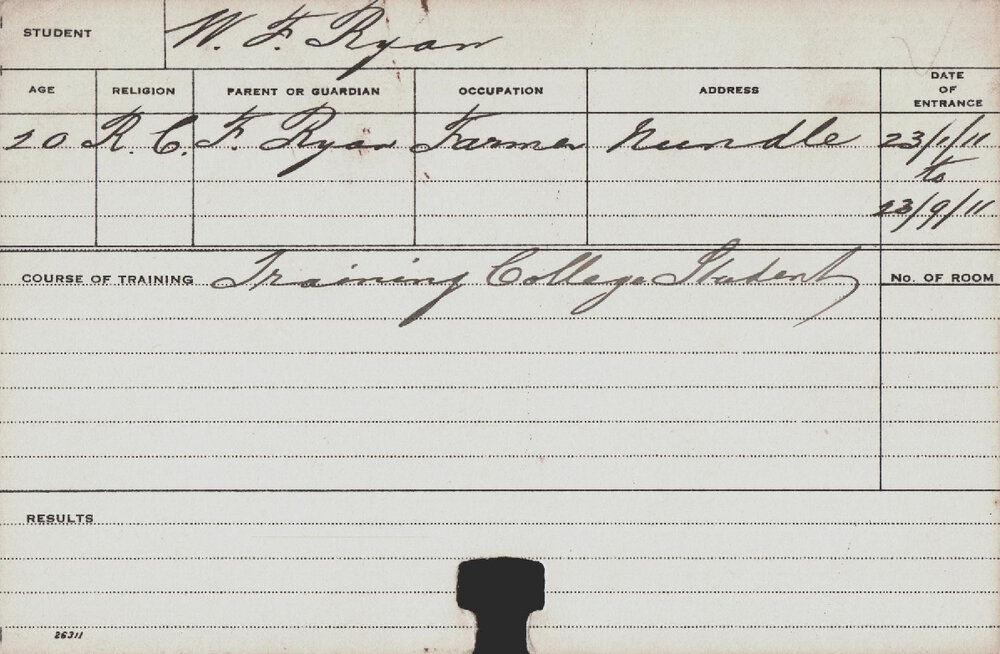 STUDENT W. F. Ryan
AGE RELIGION PARENT OR GUARDIAN OCCUPATION ADDRESS DATE OF ENTRANCE
20 R. C. F. Ryan Farmer Nundle 23/1/11
to
23/9/11
COURSE OF TRAINING Training College Student No. OF ROOM
RESULTS
26311